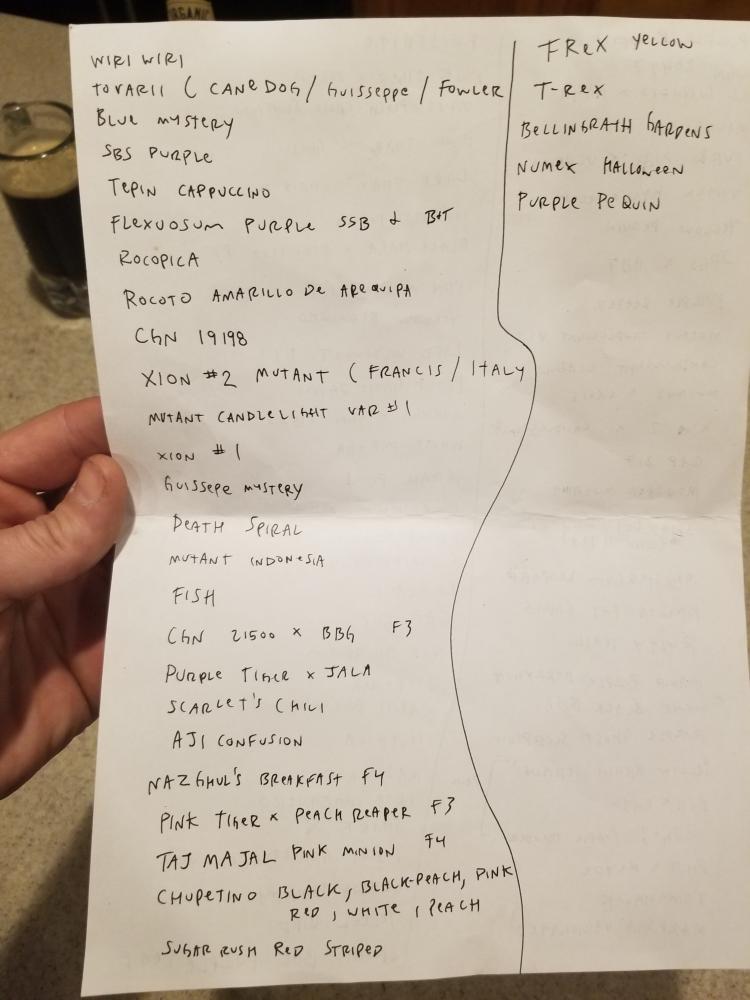 ORGANIC
WIRI WIRI
TOVARII ( CANEDOG / GUISSEPPE / FOWLER
BLUE MYSTERY
SBS PURPLE
TEPIN CAPPUCCINO
FLEXUOSUM PURPLE SSB & B+T
ROCOPICA
ROCOTO AMARILLO DE AREQUIPA
CGN 19198
XION #2 MUTANT ( FRANCIS / ITALY
MUTANT CANDLELIGHT VAR #1
XION #1
GUISSEPE MYSTERY
DEATH SPIRAL
MUTANT INDONESIA
FISH
CGN 21500 x BBG F3
PURPLE TIGER x JALA
SCARLET'S CHILI
AJI CONFUSION
NAZGHUL'S BREAKFAST F4
PINK TIGER x PEACH REAPER F3
TAJ MAJAL PINK MINION F4
CHUPETINO BLACK, BLACK-PEACH, PINK
RED, WHITE, PEACH
SUGAR RUSH RED STRIPED
FREX YELLOW
T-REX
BELLINGRATH GARDENS
NUMEX HALLOWEEN
PURPLE PEQUIN